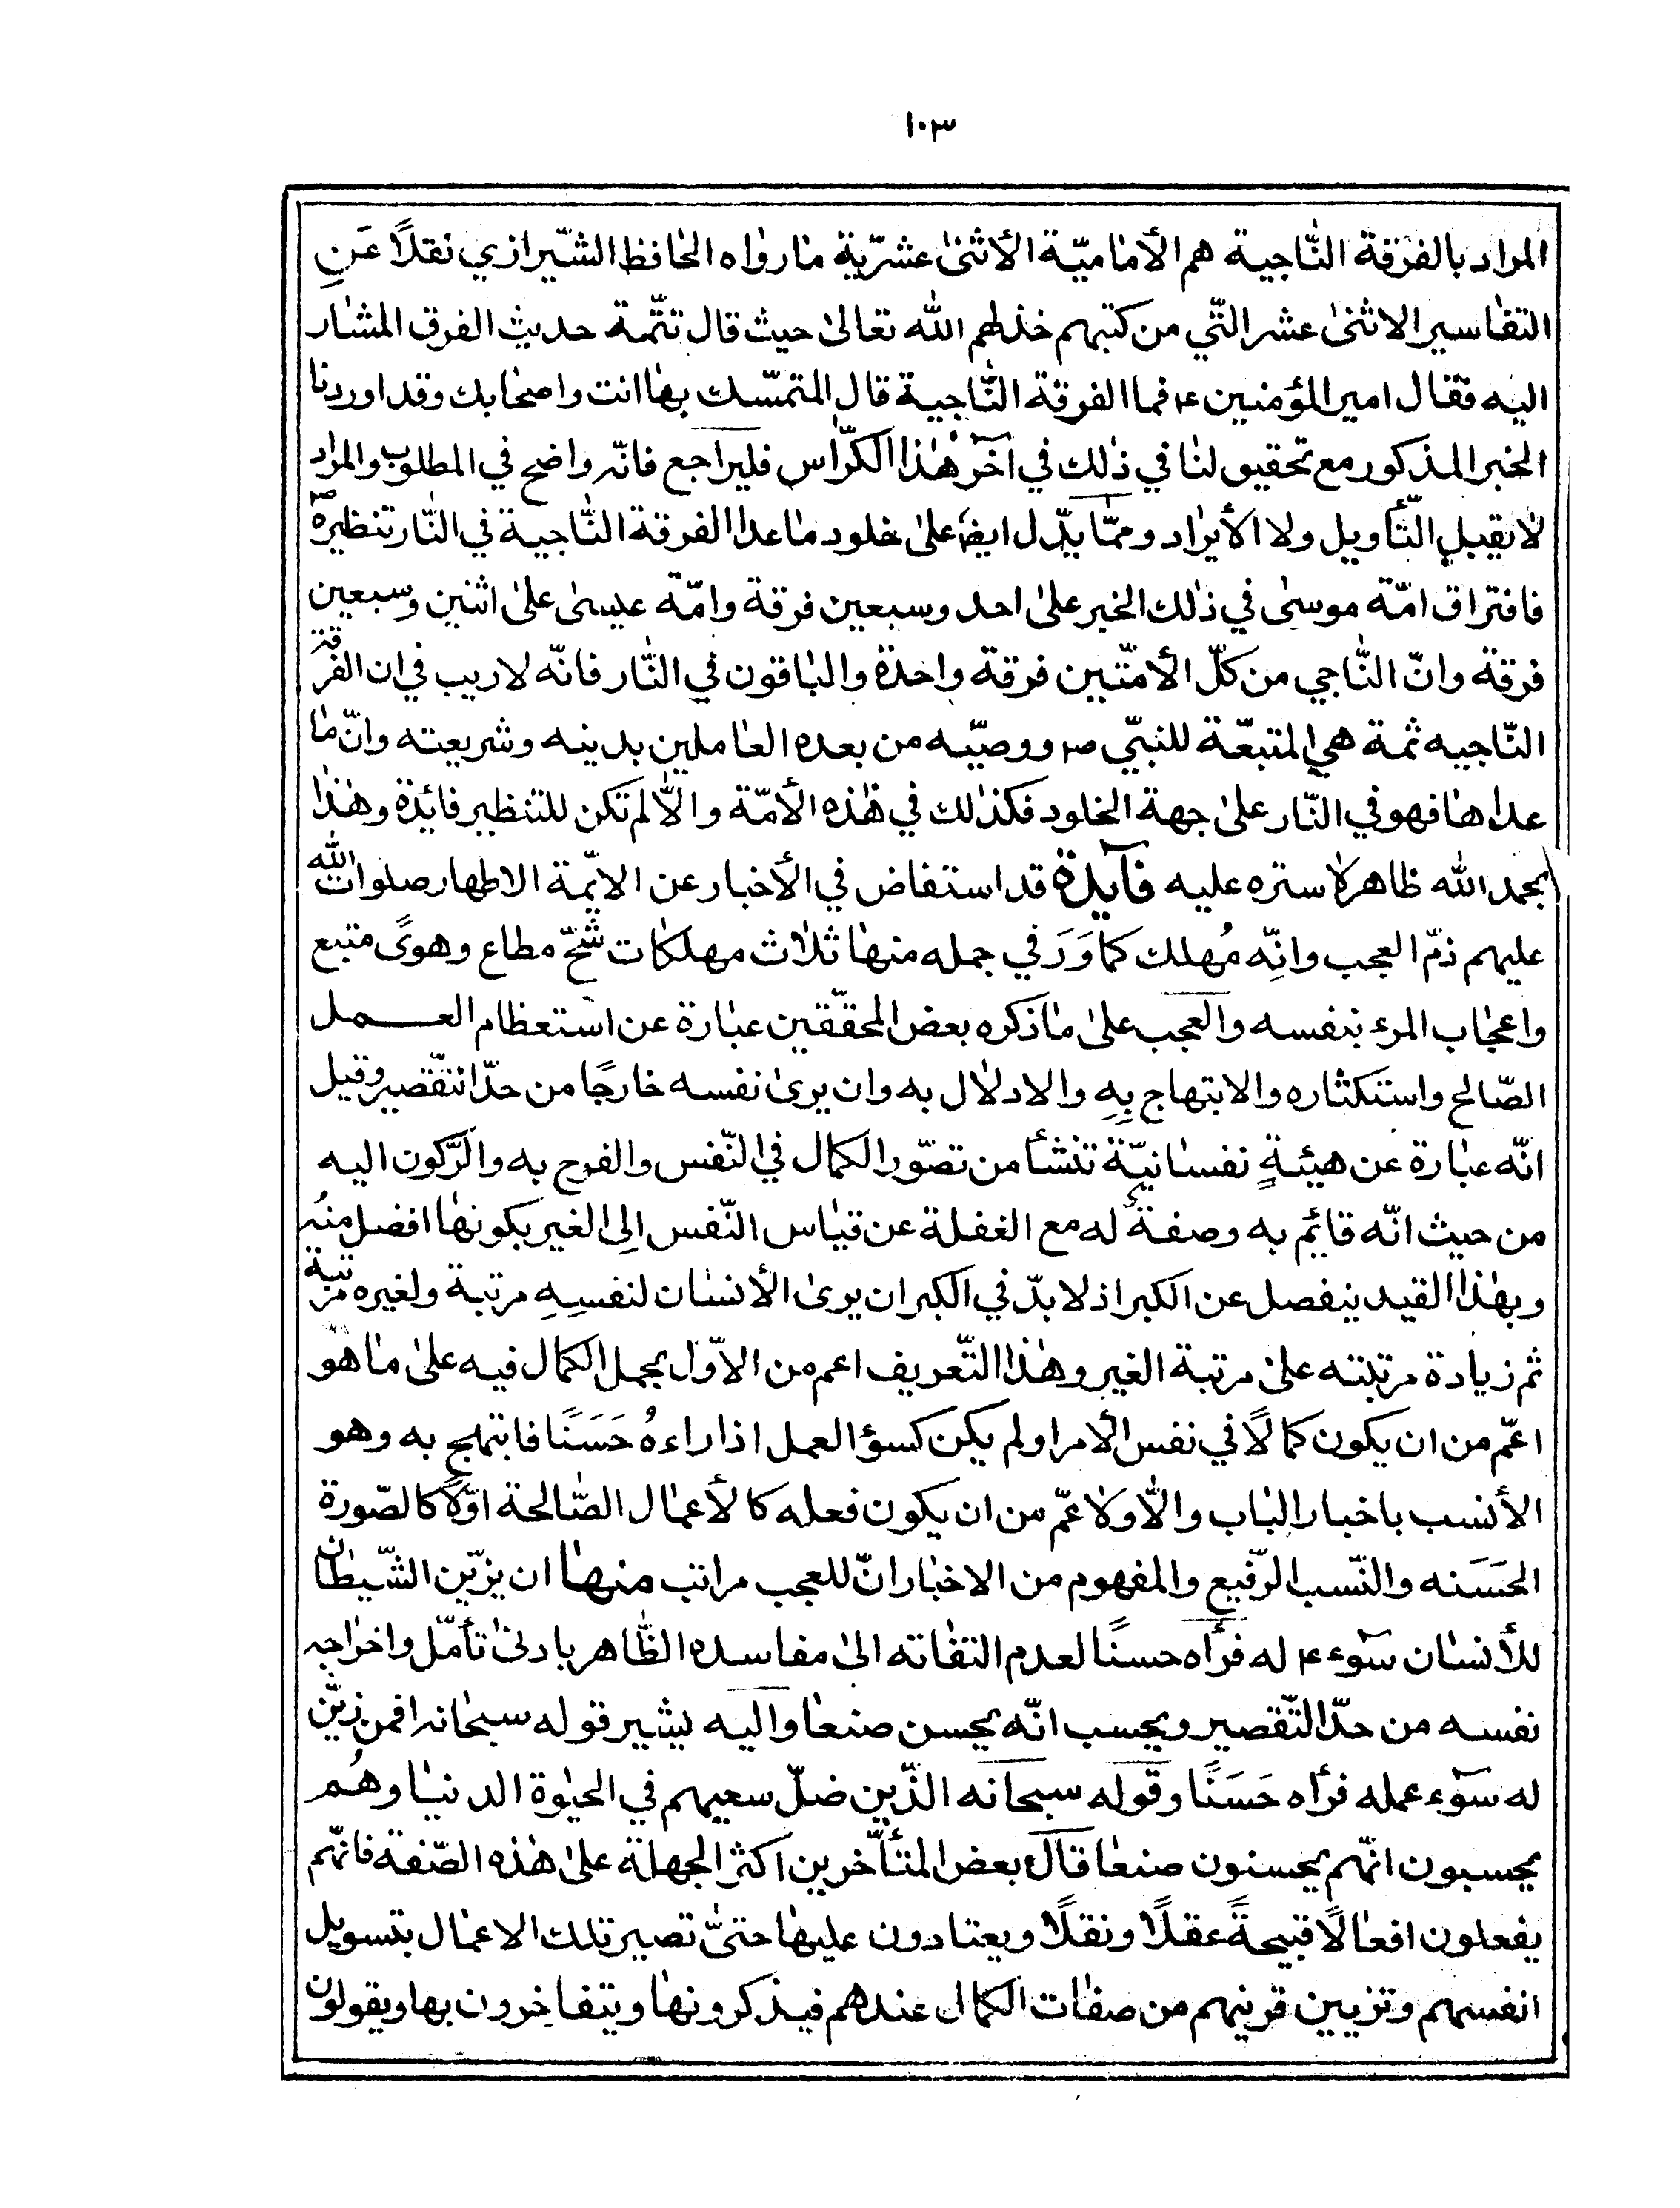 ١٠٣
المراد بالفرقة النّاجية هم الأماميّة الأثنى عشريّة ما رواه الحافظ الشّيرازي نقلًا عَنِ
التفاسير الاثنى عشر التّي من كتبهم خذلهم اللّه تعالى حيث قال تتّمة حديث الفرق المشار
اليه فقال امير المؤمنين ع فما الفرقة النّاجية قال المتمسّك بها انت واصحابك وقد اوردنا
الخبر المذكور مع تحقيق لنا في ذلك في آخر هذا الكرّاس فليراجع فانّه واضح في المطلوب والمراد
لا يقبل التّأويل ولا الأيراد وممّا يدّل ايضا على خلود ما عدا الفرقة النّاجية في النّار تنظيره ص
فافتراق امّة موسى في ذلك الخبر على احد وسبعين فرقة وامّة عيسى على اثنين وسبعين
فرقة وانّ النّاجي من كلّ الأمّتين فرقة واحدة والباقون في النّار فانّه لا ريب في ان الفرقة
النّاجيه ثمة هي المتبعّة للنبيّ ص ووصيّه من بعده العاملين بدينه وشريعته وانّ ما
عداها فهو في النّار على جهة الخلود فكذلك في هذه الأمّة والّا لم تكن للتنظير فائدة وهذا
بحمد اللّه ظاهر لا ستره عليه فآيدة قد استفاض في الأخبار عن الايّمة الاطهار صلوات اللّه
عليهم ذمّ العجب وانّه مُهلك كما وَرَد في جمله منها ثلاث مهلكات شُحّ مطاع وهوىً متبع
واعجاب المرء بنفسه والعجب على ما ذكره بعض المحقّقين عبارة عن استعظام العمل
الصّالح واستكثاره والابتهاج بِهِ والادلال به وان يرى نفسه خارجًا من حدّ التّقصير وقيل
انّه عبارة عن هيئةٍ نفسانيّة تنشأ من تصوّر الكمال في النّفس والفرح به والرّكون اليه
من حيث انّه قايم به وصفة له مع الغفلة عن قياس النّفس الى الغير بكونها افضل منه
وبهذا القيد ينفصل عن الكبر اذ لا بدّ في الكبر ان يرى الأنسان لنفسِهِ مرتبة ولغيره مرتبة
ثم زيادة مرتبته على مرتبة الغير وهذا التّعريف اعم من الاوّل بجمل الكمال فيه على ما هو
اعمّ من ان يكون كمالًا في نفس الأمر او لم يكن كسؤ العمل اذا راءهُ حَسَنًا فابتهج به وهو
الأنسب باخبار الباب والّاولا عمّ من ان يكون فعله كالأعمال الصّالحة اوّلًا كالصّورة
الحَسَنه والنّسب الرّفيع والمفهوم من الاخبار انّ للعجب مراتب منها ان يزيّن الشّيطان
للأنسان سوء ع له فرأه حسنًا لعدم التفاته الى مفاسده الظّاهر بادنى تأمّل واخراجه
نفسه من حدّ التّقصير ويحسب انّه يحسن صنعا واليه يشير قوله سبحانه افمن زيّن
له سوء عمله فرأه حَسَنًا وقوله سبحانه الذّين ضلّ سعيهم في الحيوة الدنيا وهُم
يحسبون انّهم يحسنون صنعا قال بعض المتأخّرين اكثر الجهلة على هذه الصّفة فانّهم
يفعلون افعالًا قبيحةً عقلًا ونقلًا ويعتادون عليها حتىّ تصير تلك الاعمال بتسويل
انفسهم وتزيين قرينهم من صفات الكمال عندهم فيذكرونها ويتفاخرون بها ويقولون